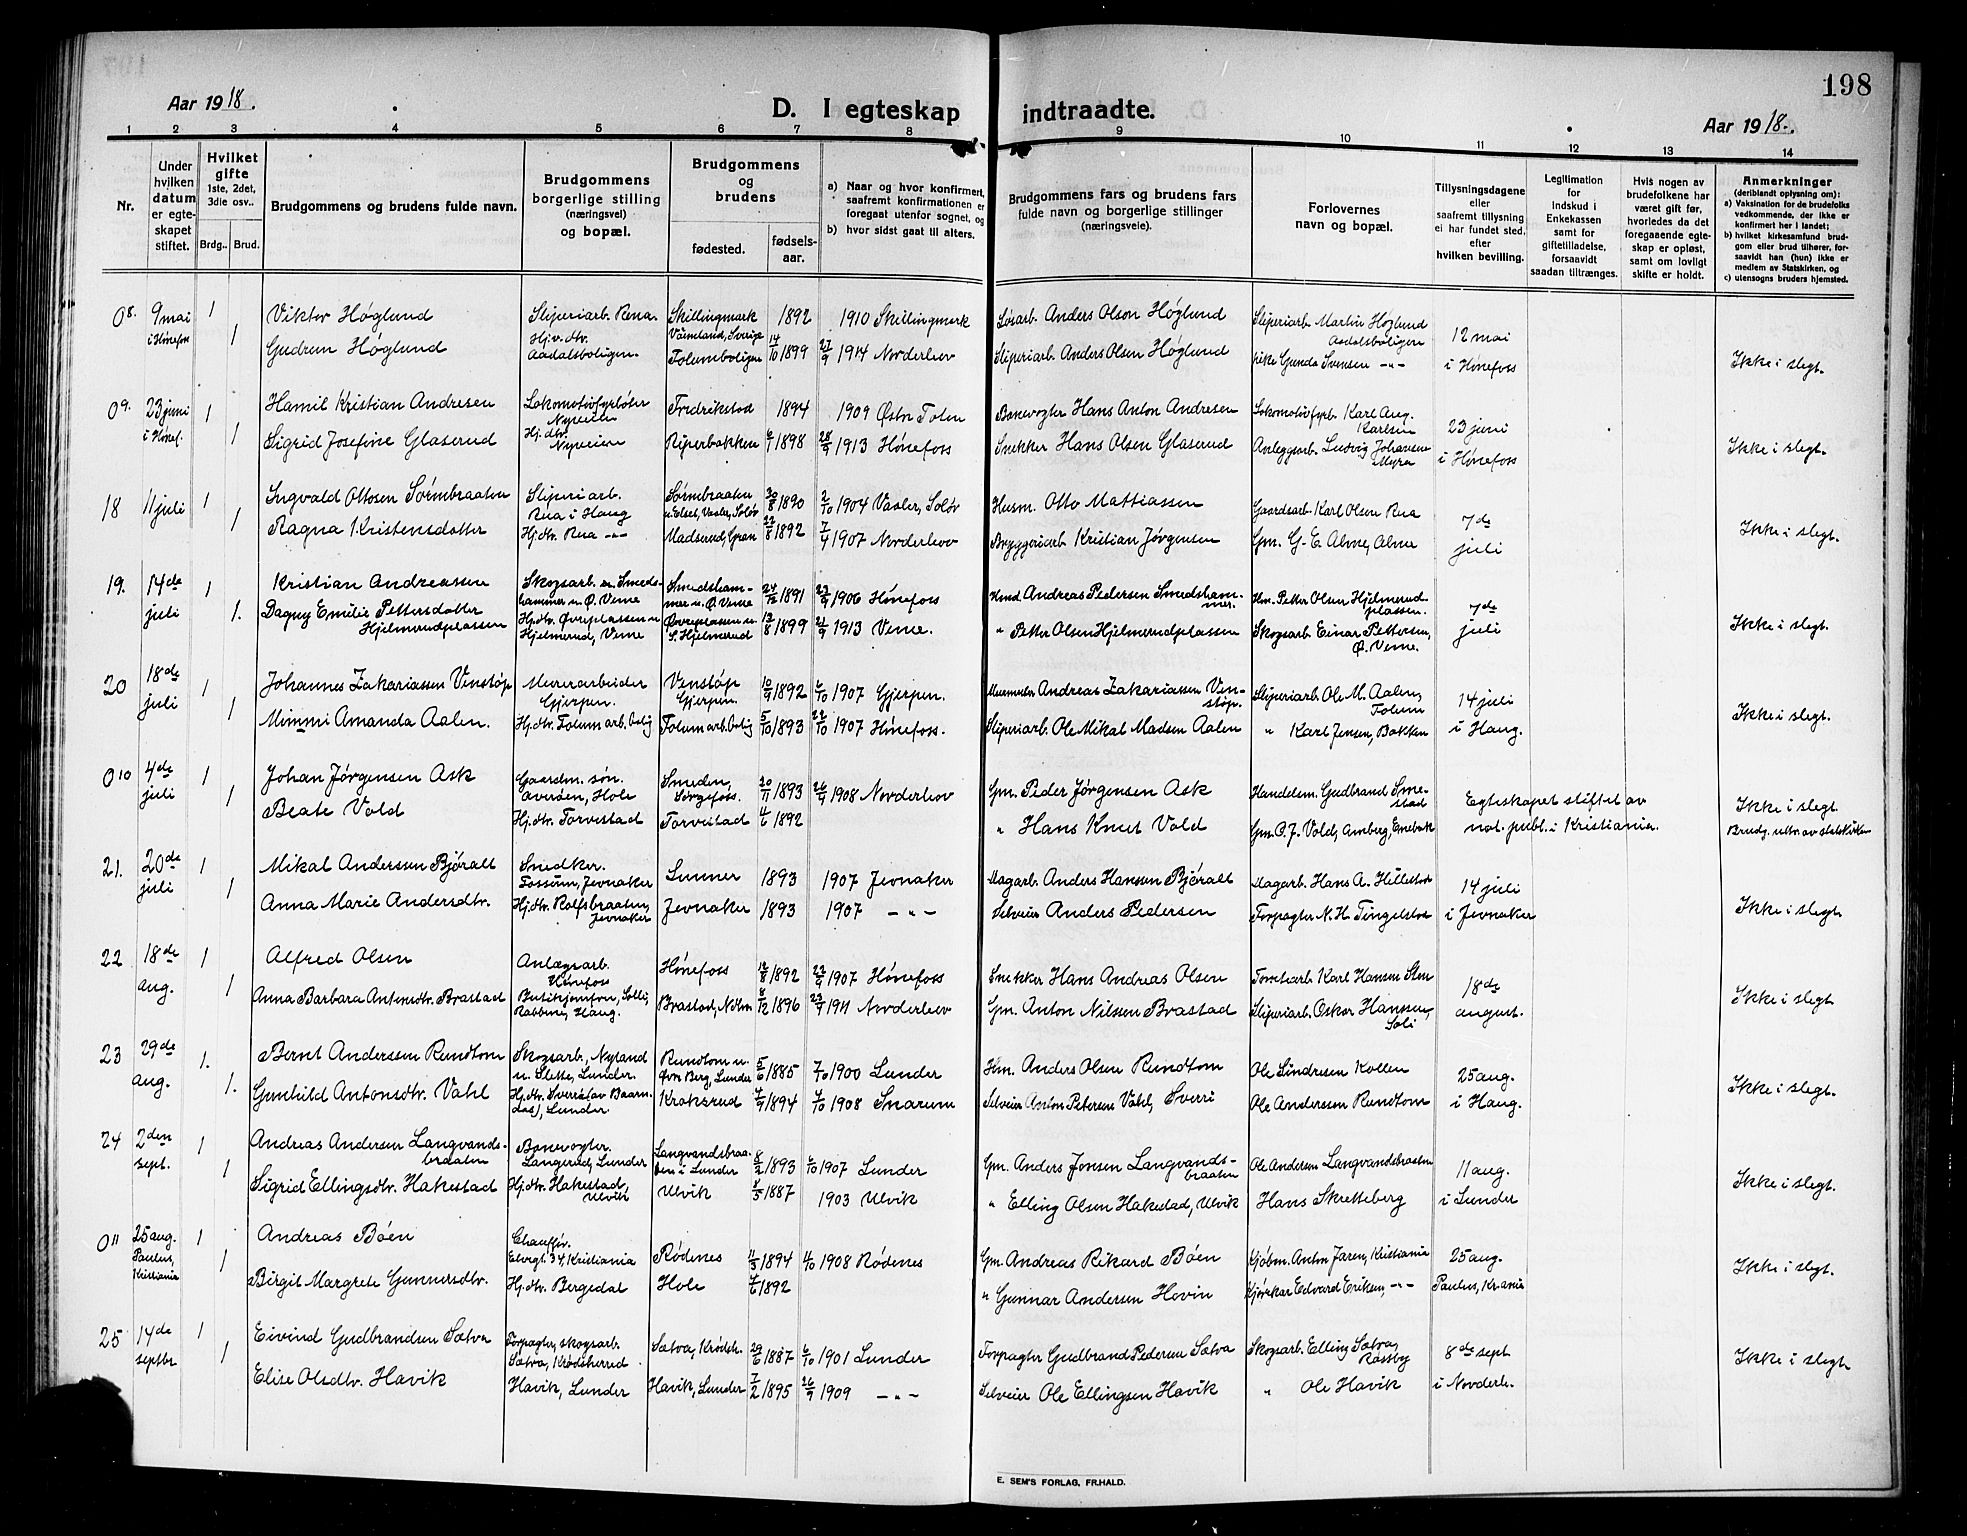 198
Aar 1918.
D. I egteskap indtraadte.
Aar 1918.
1 2 3 4 5 6 7 8 9 10 11 12 13 14
Nr.
Under hvilken datum er egteskapet stiftet.
Hvilket gifte 1ste, 2det, 3die osv..
Brdg.. Brud.
Brudgommens og brudens fulde navn.
Brudgommens borgerlige stilling (næringsvei) og bopæl.
Brudgommens og brudens
fødested. fødselsaar.
a) Naar og hvor konfirmert, saafremt konfirmationen er foregaat utenfor sognet, og
b) hvor sidst gaat til alters.
Brudgommens fars og brudens fars fulde navn og borgerlige stillinger (næringsveie).
Forlovernes navn og bopæl.
Tillysningsdagene eller saafremt tillysning ei har fundet sted. efter hvilken bevilling.
Legitimation for Indskud i Enkekassen samt for giftetilladelse, forsaavidt saadan tiltrænges.
Hvis nogen av brudefolkene har været gift før, hvorledes da det foregaaende egteskap er opløst, samt om lovligt skifte er holdt.
Anmerkninger (deriblandt oplysning om):
a) Vaksination for de brudefolks vedkommende, der ikke er konfirmert her i landet;
b) hvilket kirkesamfund brudgom eller brud tilhører, forsaavidt han (hun) ikke er medlem av Statskirken, og
c) utensogns bruders hjemsted.
08. 9 mai i Hønefos 1 Viktor Høglund Sliperiarb. Rena. Skillingmark Värmland, Sverige 1892 1910 Skillingmark Løsarb. Anders Olson Høglund Sliperiarb. Martin Høglund Aadalsboligen 12 mai
1 Gudrun Høglund Hj.v. dtr. Aadalsboligen Folumboligen 14/10 1899 27/9 1914 Norderhov Sliperiarb. Anders Olsen Høglund Gunda Svensen -"- i Hønefoss Ikke i slegt.
09. 23 juni i Hønef. 1 Hamil Kristian Andresen Lokomotivfyrbøter Nyveien Fredrikstad 1894 1909 Østre Toten Banevogter Hans Anton Andresen Lokomotivfyrb. Karl Aug. Karlsen 23 juni
1 Sigrid Josefine Glaserud Hj. dtr. Nyveien Riperbakken 6/7 1898 28/9 1913 Hønefoss Snekker Hans Olsen Glaserud Anleggsarb. Ludvig Johansen Myra i Hønefoss Ikke i slegt.
18 11 juli 1 Ingvald Ottosen Sørmbraaten Sliperiarb. Rua i Haug Sørmbraaten u. Elset, Vaaler, Solør 30/8 1890 2/10 1904 Vaaler, Solør Husm. Otto Mattiassen Gaardsarb. Karl Olsen Rua 7de
1 Ragna Kristensdatter Hj. dtr. Rua -"- Madserud, Gran 22/8 1892 7/4 1907 Norderhov Bryggeriarb. Kristian Jørgensen Gm. G. E. Alme, Alme juli Ikke i slegt.
19. 14de juli 1 Kristian Andreassen Skogsarb. Smedshammer u. Ø. Veme Smedshammer u. Ø. Veme 24/12 1891 23/9 1906 Hønefoss Hmd. Andreas Pedersen Smedshammer. Hm. Petter Olsen Hjelmerudplassen. 7de
1. Dagny Emilie Pettersdatter Hjelmerudplassen Hj. dtr. Øvreplassen u. Hjelmerud, Veme Øvreplassen u. S. Hjelmerud 13/8 1899 21/9 1913 Veme. " Petter Olsen Hjelmerudplassen Skogsarb. Einar Pettersen, Ø. Veme. juli Ikke i slegt.
20 18de juli 1 Johannes Zakariassen Venstøp Murerarbeider Gjerpen. Venstøp Gjerpen. 10/9 1892 6/10 1907 Gjerpen. Murmester Andreas Zakariassen Venstøp. Sliperiarb. Ole M. Aalen, Folum 14 juli
1 Mimmi Amanda Aalen. Hj. dtr. Folum arb. bolig Folum arb. bolig 5/10 1893 22/10 1907 Hønefoss. Sliperiarb. Ole Mikal Madsen Aalen " Karl Jensen, Bakken i Haug. Ikke i slegt.
010 4de juli 1 Johan Jørgensen Ask Gaardm. søn. Averøen, Hole Smeden, Sørgefoss. 20/11 1893 26/9 1908 Norderhov Gm. Peder Jørgensen Ask Handelsm. Gudbrand Smestad Egteskapet stiftet av Ikke i slegt
1 Beate Vold Hj. dtr. Torvestad Torvestad 4/6 1892 " Hans Knut Vold Gm. O. J. Vold, Amberg, Enebak not. publ. i Kristiania. Brudg. utm. av statskirken
21. 20de juli 1 Mikal Andersen Bjøralt Snedker. Fossum, Jevnaker Lunner 1893 1907 Jevnaker Magarb. Anders Hansen Bjøralt Magarb. Hans A. Hillestad 14 juli
1 Anna Marie Andersdtr. Hj. dtr. Rolfsbraaten, Jevnaker Jevnaker 1893 1907 -"- Selveier Anders Pedersen Forpagter N. H. Tingelstad i Jevnaker Ikke i slegt.
22 18de aug. 1 Alfred Olsen Anlægsarb. Hønefoss Hønefoss 12/8 1892 22/9 1907 Hønefoss Snekker Hans Andreas Olsen Karl Hansen 18de
1 Anna Barbara Antonsdtr. Brastad Butikjomfru, Solli, Rabbene, Haug. Brastad, Ndhn 8/12 1896 23/9 1911 Norderhov Gm. Anton Nilsen Brastad Sliperiarb. Oskar Hanssen, Soli august. Ikke i slegt
23 29de aug. 1. Bernt Anderssen Rundtom Skogsarb. Nyland u. Slette, Lunder. Rundtom u. Øvre Berg, Lunder 5/6 1885 7/10 1900 Lunder Hm. Anders Olsen Rundtom Ole Sindresen Kollen 25 aug.
1. Gunhild Antonsdtr. Vahl Hj. dtr. Sverristøv Baarndas), Lunder Kroksrud 4/9 1894 4/10 1908 Snarum Selveier Anton Petersen Vahl, Sverri Ole Anderssen Rundtom i Haug. Ikke i slegt.
24 2den sept. 1 Andreas Andersen Langvandsbraaten Banevogter. Langerud, Lunder Langvandsbraaten i Lunder 8/2 1893 6/10 1907 Lunder Gm. Anders Jonsen Langvandsbraaten Ole Andersen Langvandsbraaten 11 aug.
1 Sigrid Ellingsdtr. Hakestad Hj. dtr. Hakestad, Ulvik Ulvik 8/5 1887 1903 Ulvik " Elling Olsen Hakestad, Ulvik Hans Skretteberg i Lunder Ikke i slegt.
011 25 aug. Paulus, Kristiania 1 Andreas Bøen Chauffør. Elvegt. 34, Kristiania Rødenes 11/3 1894 4/10 1908 Rødenes Gm. Andreas Rikard Bøen Kjøbm. Anton Jaren, Kristiania 25 aug.
1 Birgit Margrete Gunnarsdtr. Hj. dtr. Bergedal Hole 7/6 1892 " Gunnar Andersen Hovin Edvard Eriksen, -"- Paulus, Krania Ikke i slegt.
25 14de septbr 1 Eivind Gudbrandsen Sætra Forpagter, skogsarb. Sætra, Krødsherred Sætra, Krødsh. 29/6 1887 6/10 1901 Lunder Forpagter Gudbrand Pedersen Sætra Skogsarb. Elling Sætra, Røssby 8de sept
1 Elise Olsdtr. Havik Havik, Lunder Havik, Lunder 7/2 1895 26/9 1909 -"- Selveier Ole Ellingsen Havik " Ole Havik i Norderh. Ikke i slegt
E. SEM'S FORLAG, FR.HALD.